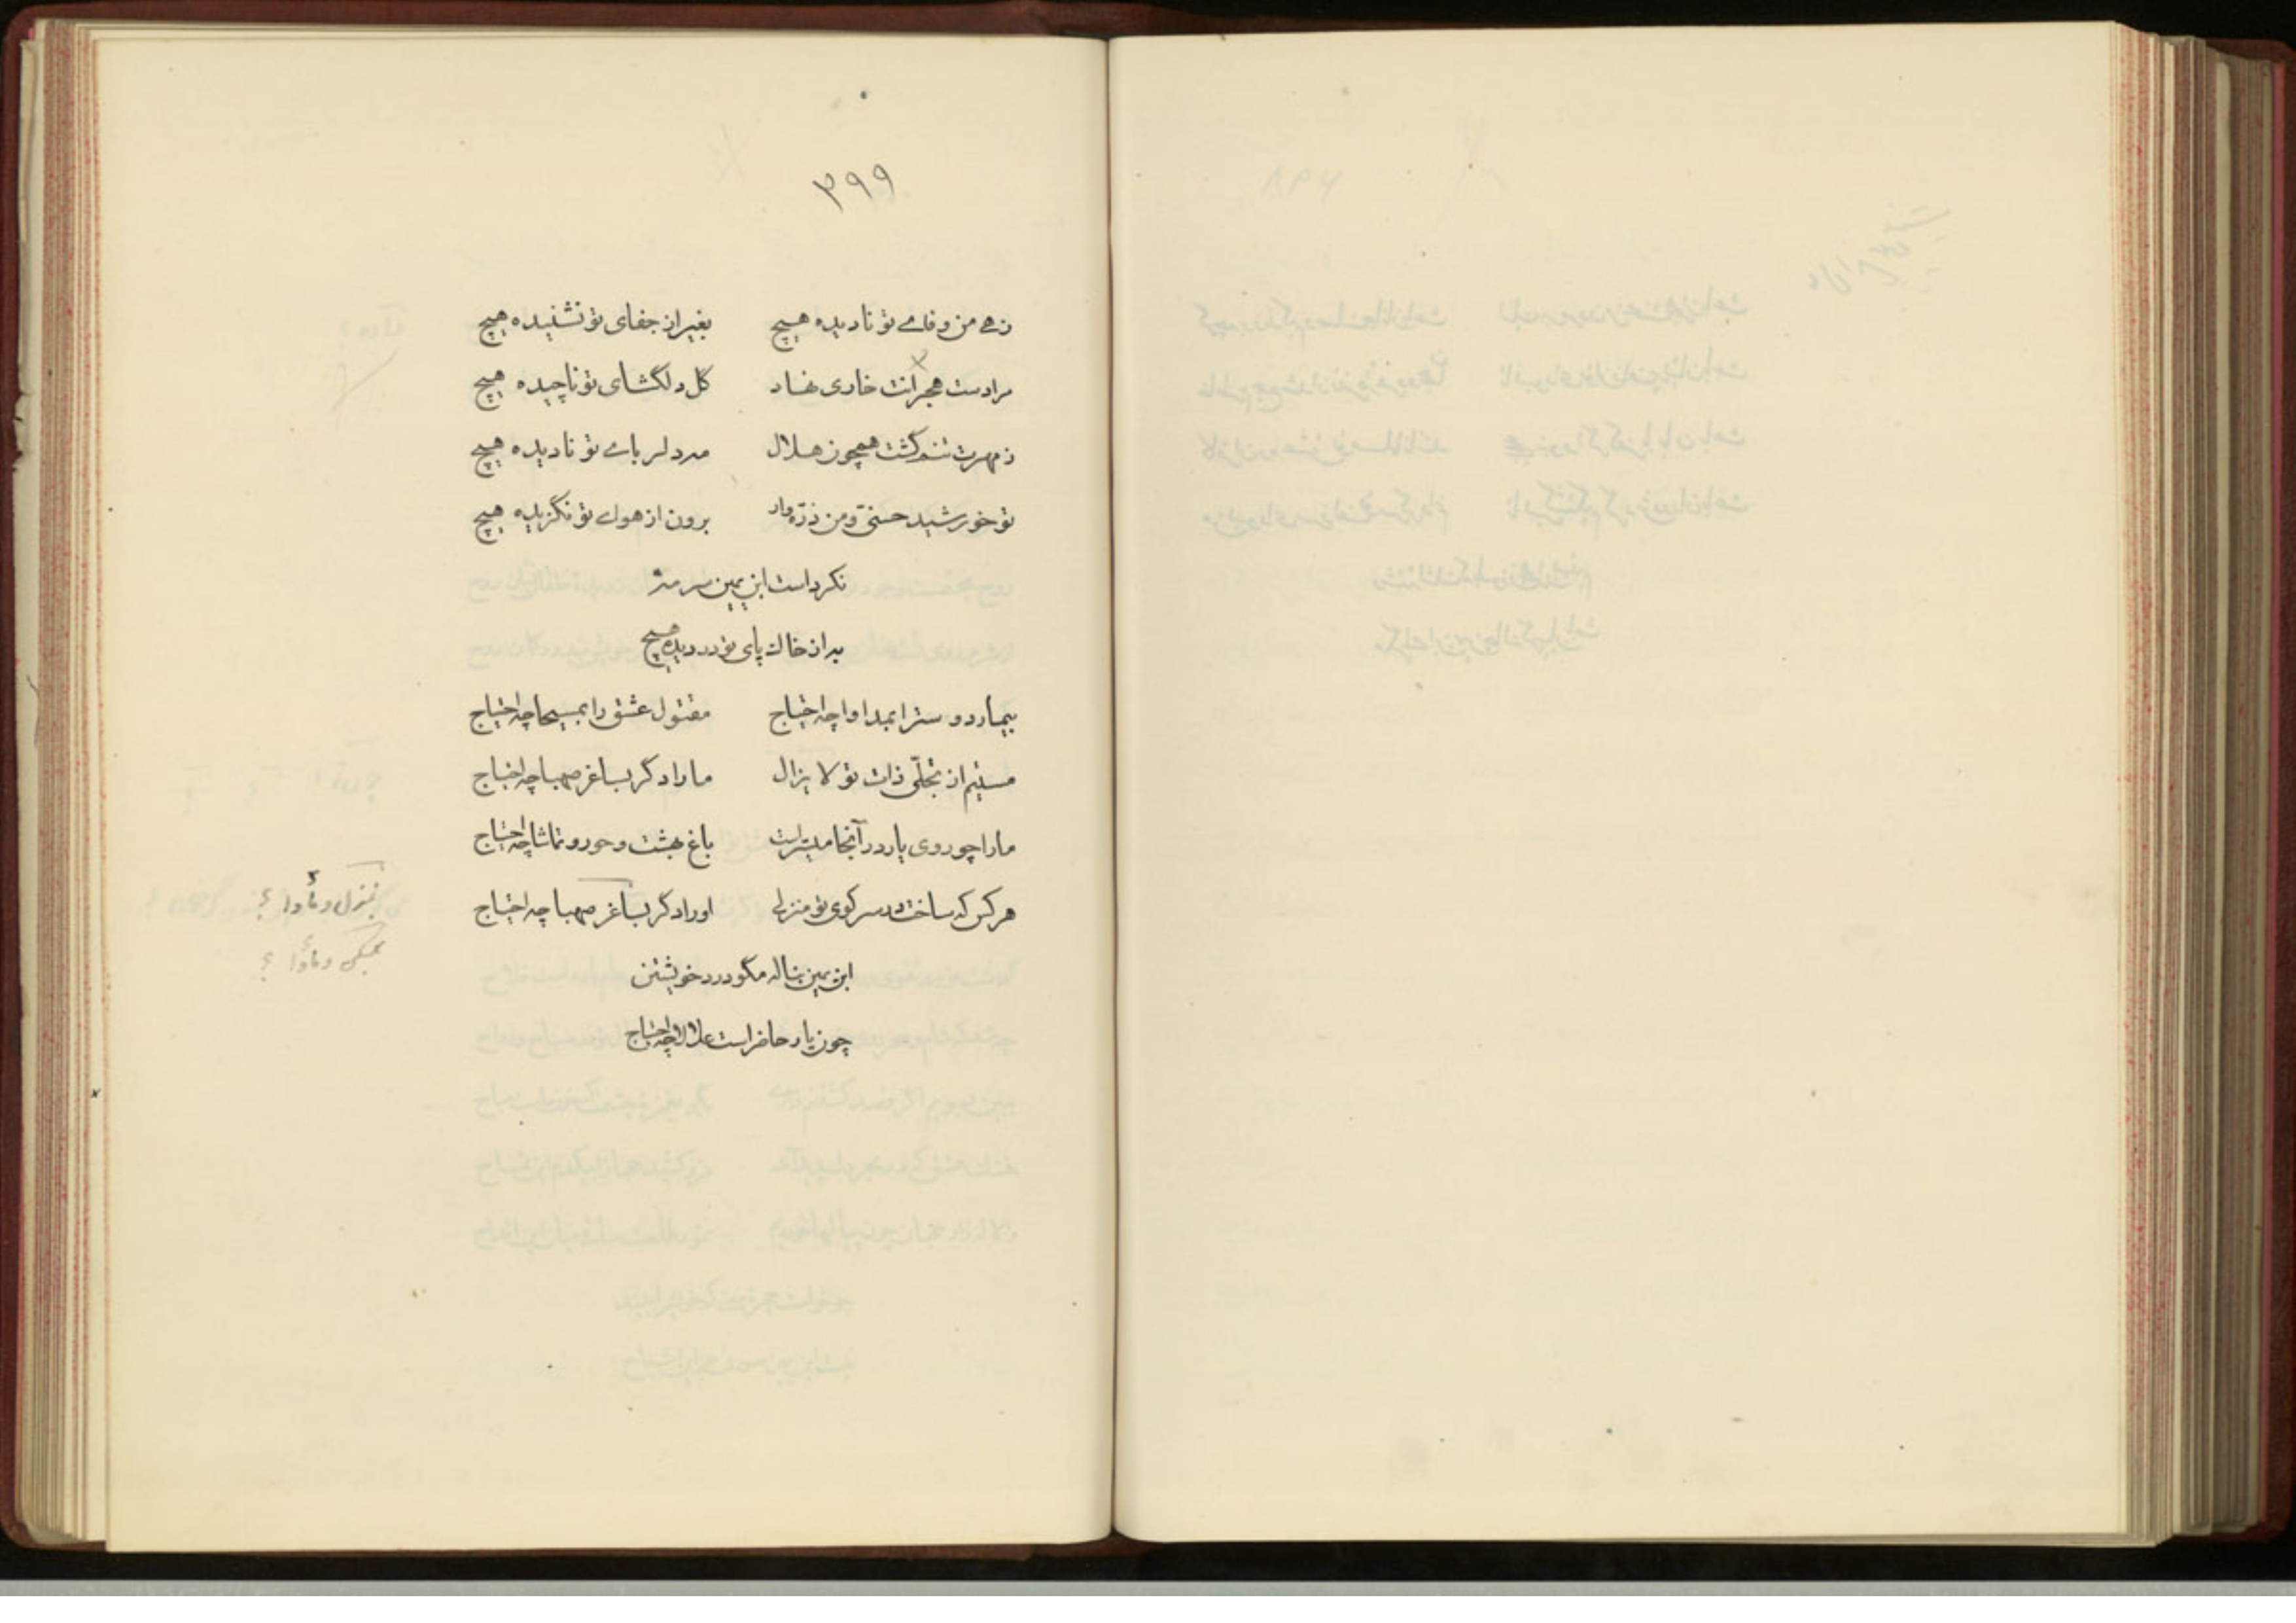 ۳۹۹
زهے من وفاے تو نادیده هیچ بغیر از جفای تو نشنیده هیچ
مرا دست هجرانت خاری نهاد گل دلگشای تو ناچیده هیچ
ز مهرت تنم گشت همچون هلال مه دلرباے تو نادیده هیچ
تو خورشید حسنی و من ذرّه وار برون از هواے تو نگزیده هیچ
نکرداست ابن یمین سرمهٔ
به از خاك پای تو در دیده هیچ
بیمار دوسترا بمداوا چه احتیاج مقتول عشق را بمسیحا چه احتیاج
مستیم از تجلّی ذات تو لا یزال ما را دگر بساغر صهبا چه احتیاج
ما را چو روی یار در آنجا میسّرلست باغ بهشت و حور و تماشا چه احتیاج
هر کس که ساخت در سر کوی تو منزلی او را دگر بساغر صهبا چه احتیاج
بمنزل و مأوا ؟
بمسکن و مأوا ؟
ابن یمین بناله مگو درد خویشتن
چون یار حاضر است علالا چه احتیاج